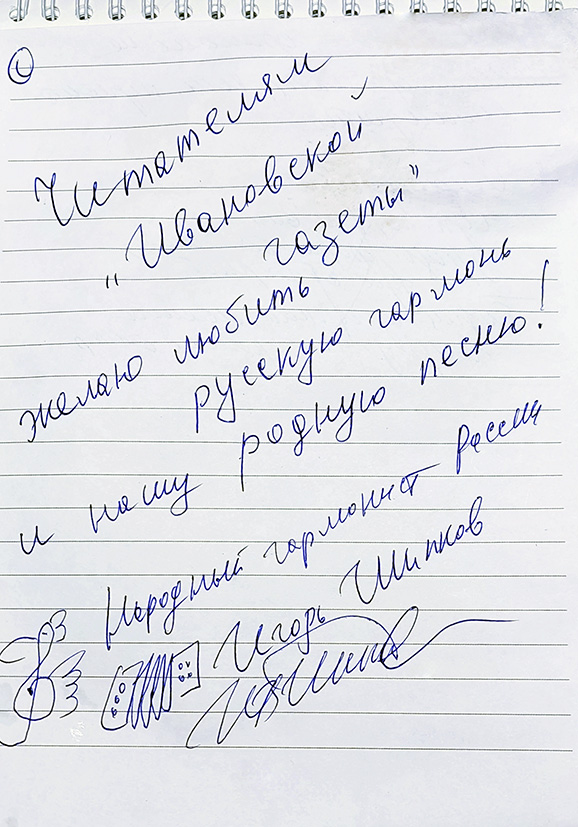 Читателям
"Ивановской
газеты"
желаю любить
русскую гармонь
и нашу родную песню!
Народный гармонист России
Игорь Шипков